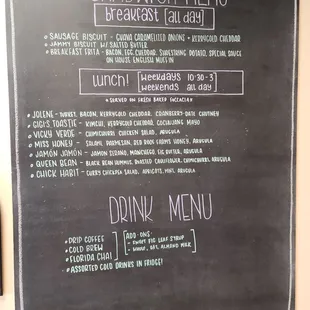 SANDWICH MENU
breakfast [all day]
• SAUSAGE BISCUIT - GUAVA CARAMELIZED ONIONS + KERRYGOLD CHEDDAR
• JAMMY BISCUIT W/ SALTED BUTTER
• BREAKFAST FRITA - BACON, EGG, CHEDDAR, SHOESTRING POTATO, SPECIAL SAUCE
ON HOUSE ENGLISH MUFFIN
lunch! weekdays 10:30-3
weekends all day
* SERVED ON FRESH BAKED FOCACCIA *
• JOLENE - TURKEY, BACON, KERRYGOLD CHEDDAR, CRANBERRY-DATE CHUTNEY
• GIGI'S TOASTIE - KIMCHI, KERRYGOLD CHEDDAR, GOCHUJANG MAYO
• VICKY VERDE - CHIMICHURRI CHICKEN SALAD, ARUGULA
• MISS HONEY - SALAMI, PARMESAN, RED HONEY, ARUGULA
• JAMÓN JAMÓN - JAMON SERRANO, MANCHEGO FIG BUTTER, ARUGULA
• QUEEN BEAN - BLACK BEAN HUMMUS, ROASTED CAULIFLOWER, CHIMICHURRI, ARUGULA
• CHICK HABIT - CURRY CHICKPEA SALAD, APRICOTS, MINT, ARUGULA
DRINK MENU
• DRIP COFFEE
• COLD BREW
• FLORIDA CHAI
ADD-ONS:
- SWEET FIG LEAF SYRUP
- WHOLE, OAT, ALMOND MILK
• ASSORTED COLD DRINKS IN FRIDGE!